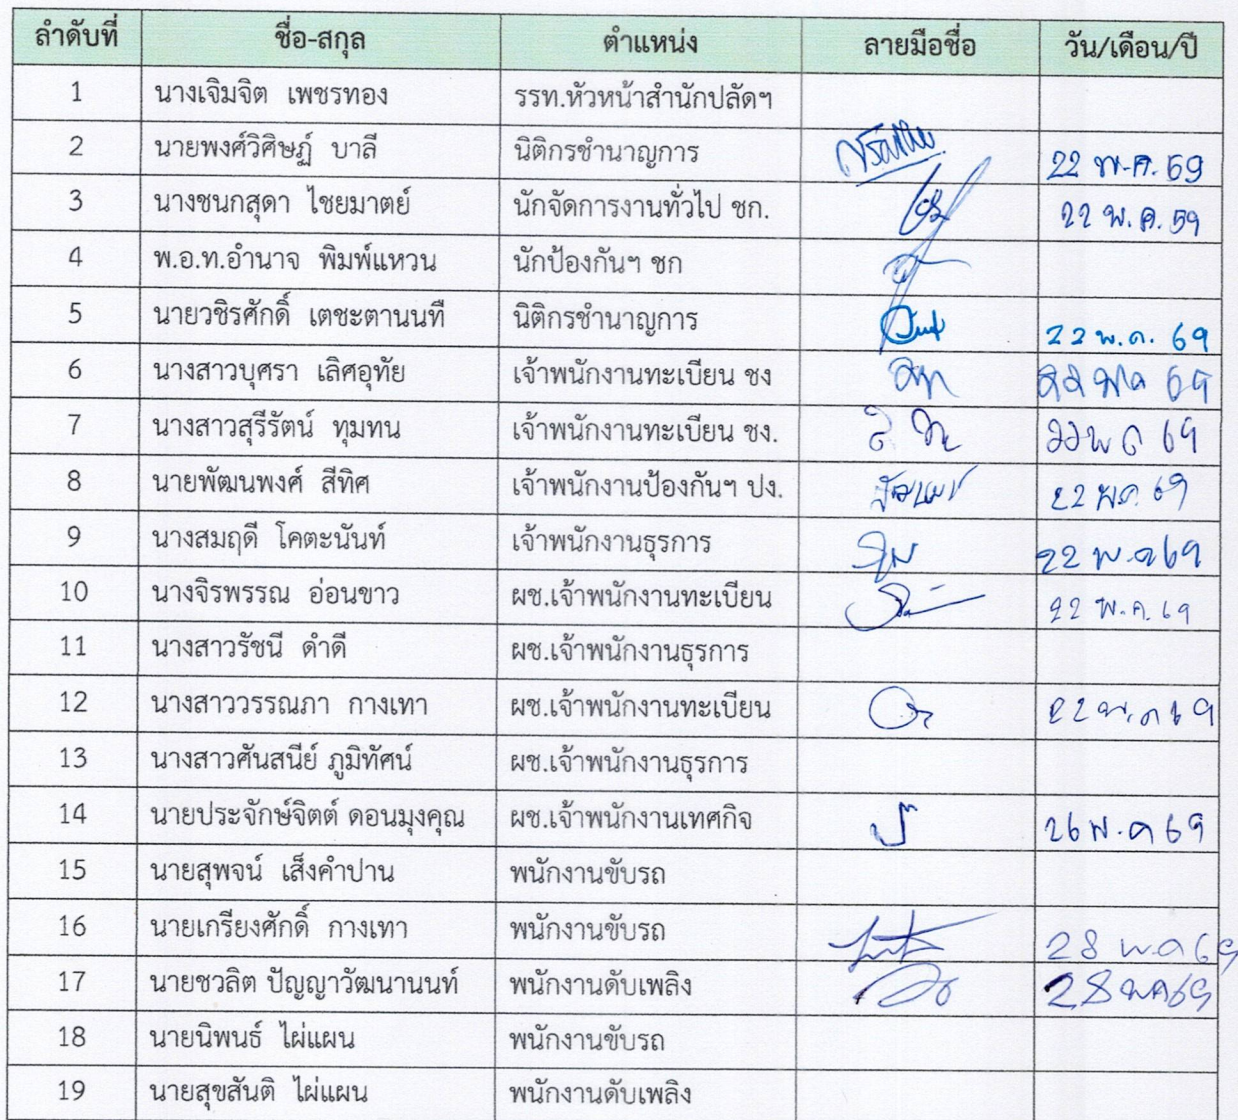 ลำดับที่ ชื่อ-สกุล ตำแหน่ง ลายมือชื่อ วัน/เดือน/ปี
1 นางเจิมจิต เพชรทอง รรท.หัวหน้าสำนักปลัดฯ
2 นายพงศ์วิศิษฏ์ บาลี นิติกรชำนาญการ 22 พ.ค. 69
3 นางชนกสุดา ไชยมาตย์ นักจัดการงานทั่วไป ชก. 22 พ.ค. 59
4 พ.อ.ท.อำนาจ พิมพ์แหวน นักป้องกันฯ ชก
5 นายวชิรศักดิ์ เตชะตานนที นิติกรชำนาญการ 22 พ.ค. 69
6 นางสาวบุศรา เลิศอุทัย เจ้าพนักงานทะเบียน ชง 22 พค 69
7 นางสาวสุรีรัตน์ ทุมทน เจ้าพนักงานทะเบียน ชง. 22 พค 69
8 นายพัฒนพงศ์ สีทิศ เจ้าพนักงานป้องกันฯ ปง. 22 พค. 69
9 นางสมฤดี โคตะนันท์ เจ้าพนักงานธุรการ 22 พ.ค 69
10 นางจิรพรรณ อ่อนขาว ผช.เจ้าพนักงานทะเบียน 22 พ.ค. 69
11 นางสาวรัชนี ดำดี ผช.เจ้าพนักงานธุรการ
12 นางสาววรรณภา กางเทา ผช.เจ้าพนักงานทะเบียน 22 พ.ค 69
13 นางสาวศันสนีย์ ภูมิทัศน์ ผช.เจ้าพนักงานธุรการ
14 นายประจักษ์จิตต์ ดอนมุงคุณ ผช.เจ้าพนักงานเทศกิจ 26 พ.ค 69
15 นายสุพจน์ เส็งคำปาน พนักงานขับรถ
16 นายเกรียงศักดิ์ กางเทา พนักงานขับรถ 28 พ.ค 69
17 นายชวลิต ปัญญาวัฒนานนท์ พนักงานดับเพลิง 28 พค 69
18 นายนิพนธ์ ไผ่แผน พนักงานขับรถ
19 นายสุขสันติ ไผ่แผน พนักงานดับเพลิง